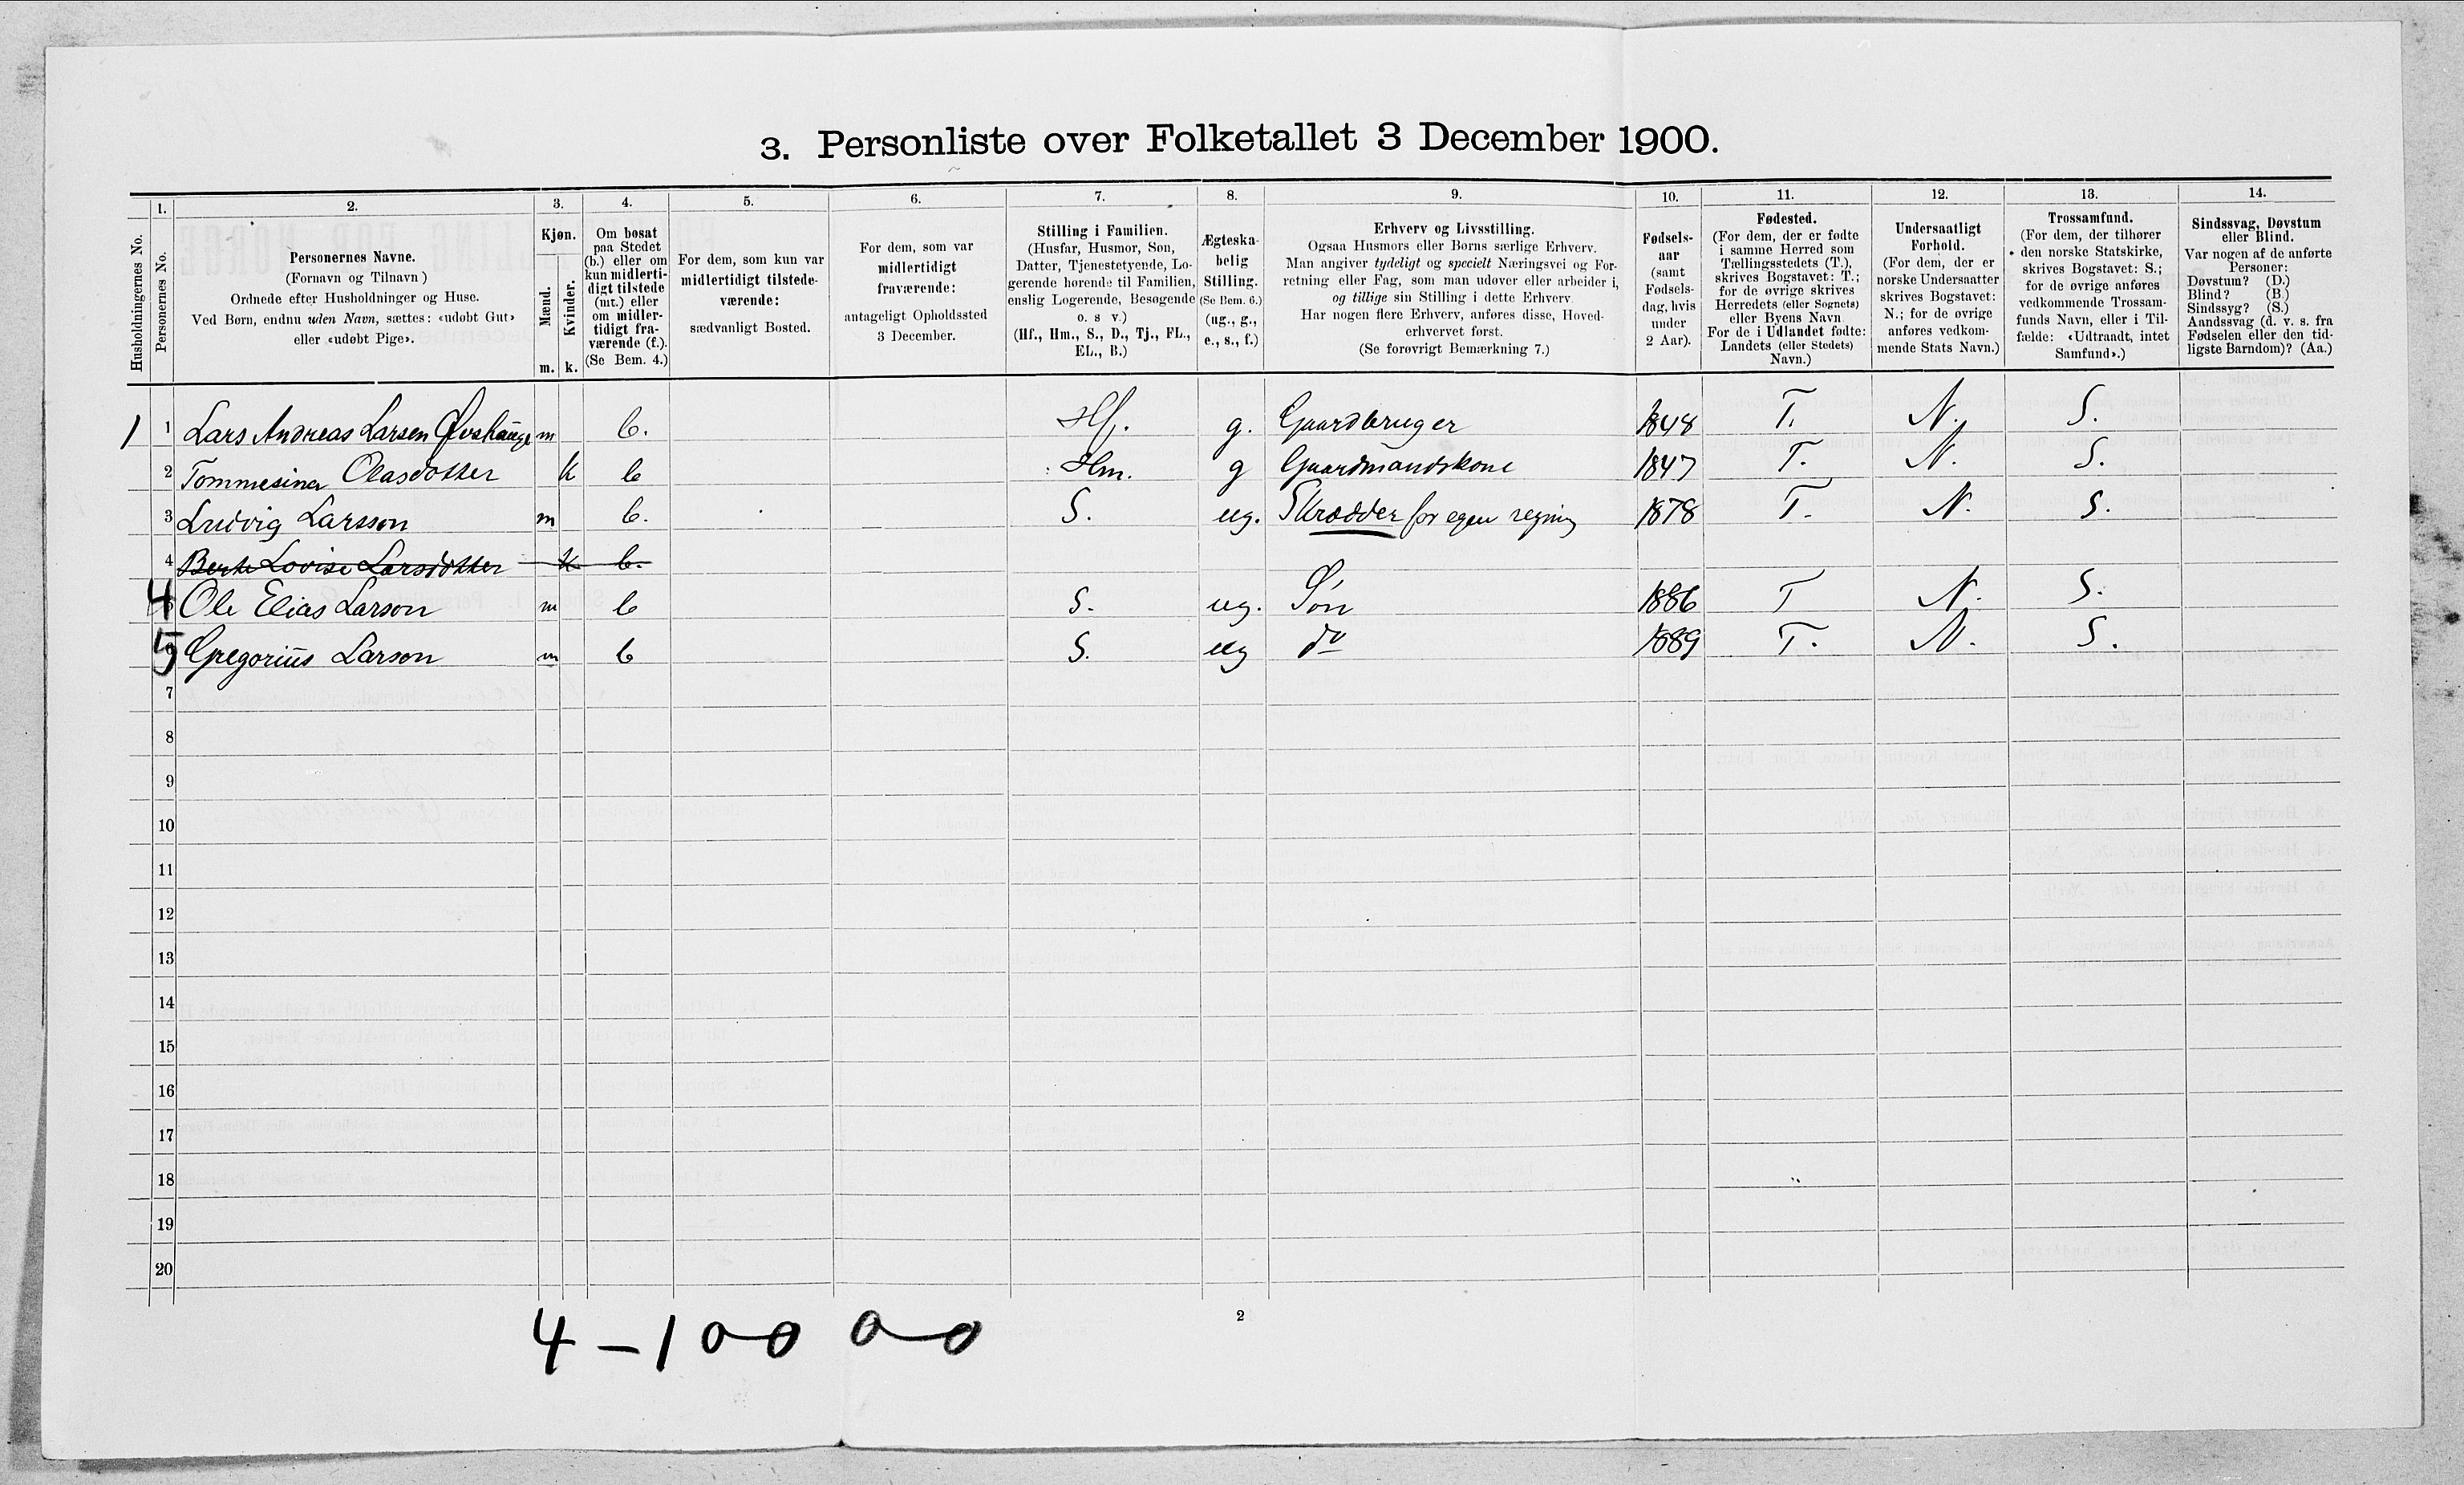 3. Personliste over Folketallet 3 December 1900.
1. 2. 3. 4. 5. 6. 7. 8. 9. 10. 11. 12. 13. 14.
Husholdningernes No.
Personernes No.
Personernes Navne.
(Fornavn og Tilnavn )
Ordnede efter Husholdninger og Huse.
Ved Børn, endnu uden Navn, sættes: «udøbt Gut»
eller «udøbt Pige».
Kjøn.
Mænd.
Kvinder.
m. k.
Om bosat
paa Stedet
(b.) eller om
kun midlerti-
digt tilstede
(mt.) eller
om midler-
tidigt fra-
værende (f.).
(Se Bem. 4.)
For dem, som kun var
midlertidigt tilstede-
værende:
sædvanligt Bosted.
For dem, som var
midlertidigt
fraværende:
antageligt Opholdssted
3 December.
Stilling i Familien.
(Husfar, Husmor, Søn,
Datter, Tjenestetyende, Lo-
gerende hørende til Familien,
enslig Logerende, Besøgende
o. s v.)
(Hf., Hm., S., D., Tj., FL.,
EL., B.)
Ægteska-
belig
Stilling.
(Se Bem. 6.)
(ug., g.,
e., s., f.)
Erhverv og Livsstilling.
Ogsaa Husmors eller Børns særlige Erhverv.
Man angiver tydeligt og specielt Næringsvei og For-
retning eller Fag, som man udøver eller arbeider i,
og tillige sin Stilling i dette Erhverv.
Har nogen flere Erhverv, anføres disse, Hoved-
erhvervet først.
(Se forøvrigt Bemærkning 7.)
Fødsels-
aar
(samt
Fødsels-
dag, hvis
under
2 Aar).
Fødested.
(For dem, der er fødte
i samme Herred som
Tællingsstedets (T.),
skrives Bogstavet: T.;
for de øvrige skrives
Herredets (eller Sognets)
eller Byens Navn
For de i Udlandet fødte:
Landets (eller Stedets)
Navn.)
Undersaatligt
Forhold.
(For dem, der er
norske Undersaatter
skrives Bogstavet:
N.; for de øvrige
anføres vedkom-
mende Stats Navn.)
Trossamfund.
(For dem, der tilhører
den norske Statskirke,
skrives Bogstavet: S.;
for de øvrige anføres
vedkommende Trossam-
funds Navn, eller i Til-
fælde: «Udtraadt, intet
Samfund».)
Sindssvag, Døvstum
eller Blind.
Var nogen af de anførte
Personer:
Døvstum? (D.)
Blind? (B.)
Sindssyg? (S.)
Aandssvag (d. v. s. fra
Fødselen eller den tid-
ligste Barndom)? (Aa.)
1 1 Lars Andreas Larsen m b. Hf. g. Gaardbruger 1848 T. N. S.
2 Tommesina Olasdotter k b Hm. g Gaardmandskone 1847 T. N. S.
3 Ludvig Larsson m b. S. ug. Skrædder for egen regning 1878 T. N. S.
4 Berte Lovise Larsdotter k b.
4 Ole Elias Larson m b S. ug. Søn 1886 T N. S.
5 Gregorius Larson m b S. ug do 1889 T. N. S.
7
8
9
10
11
12
13
14
15
16
17
18
19
20
2
4 – 1 0–0 0–0